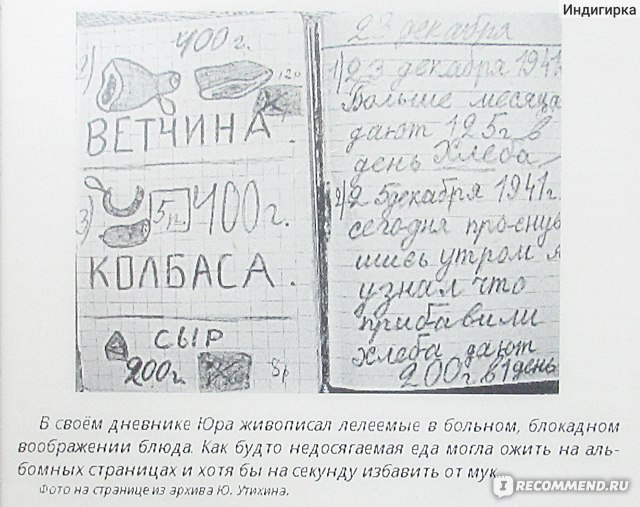 Индигирка
400 г.
2)
120
ВЕТЧИНА.
3)
5р.
400г.
КОЛБАСА.
СЫР
200г.
8р
23 декабря
1) 23 декабря 1941
Больше месяца
дают 125г в
день Хлеба
2) 25 декабря 1941г.
сегодня проснув
шись утром я
узнал что
прибавили
хлеба дают
200г в 1 день
В своём дневнике Юра живописал лелеемые в больном, блокадном
воображении блюда. Как будто недосягаемая еда могла ожить на аль-
бомных страницах и хотя бы на секунду избавить от мук...
Фото на странице из архива Ю. Утихина.
I RECOMMEND.RU